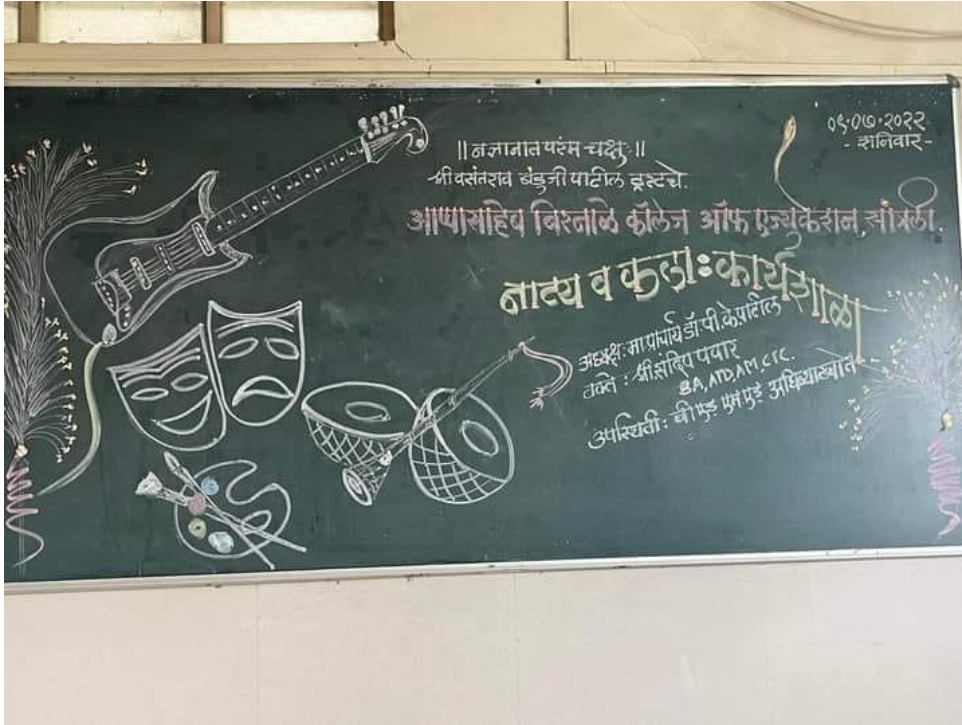 ०९.०७.२०२२
- शनिवार -
|| नज्ञानात परंम चक्षुः ||
श्री वसंतराव बंडुजी पाटील ट्रस्टचे.
आपासाहेब बिरनाळे कॉलेज ऑफ एज्युकेशन, सांगली.
नाट्य व कला : कार्यशाळा
अध्यक्ष : मा. प्राचार्य डॉ पी. के. पाटील
वक्ते : श्री संदिप पवार
BA, ATD, AM, CTC.
उपस्थिती : बी एड एम एड